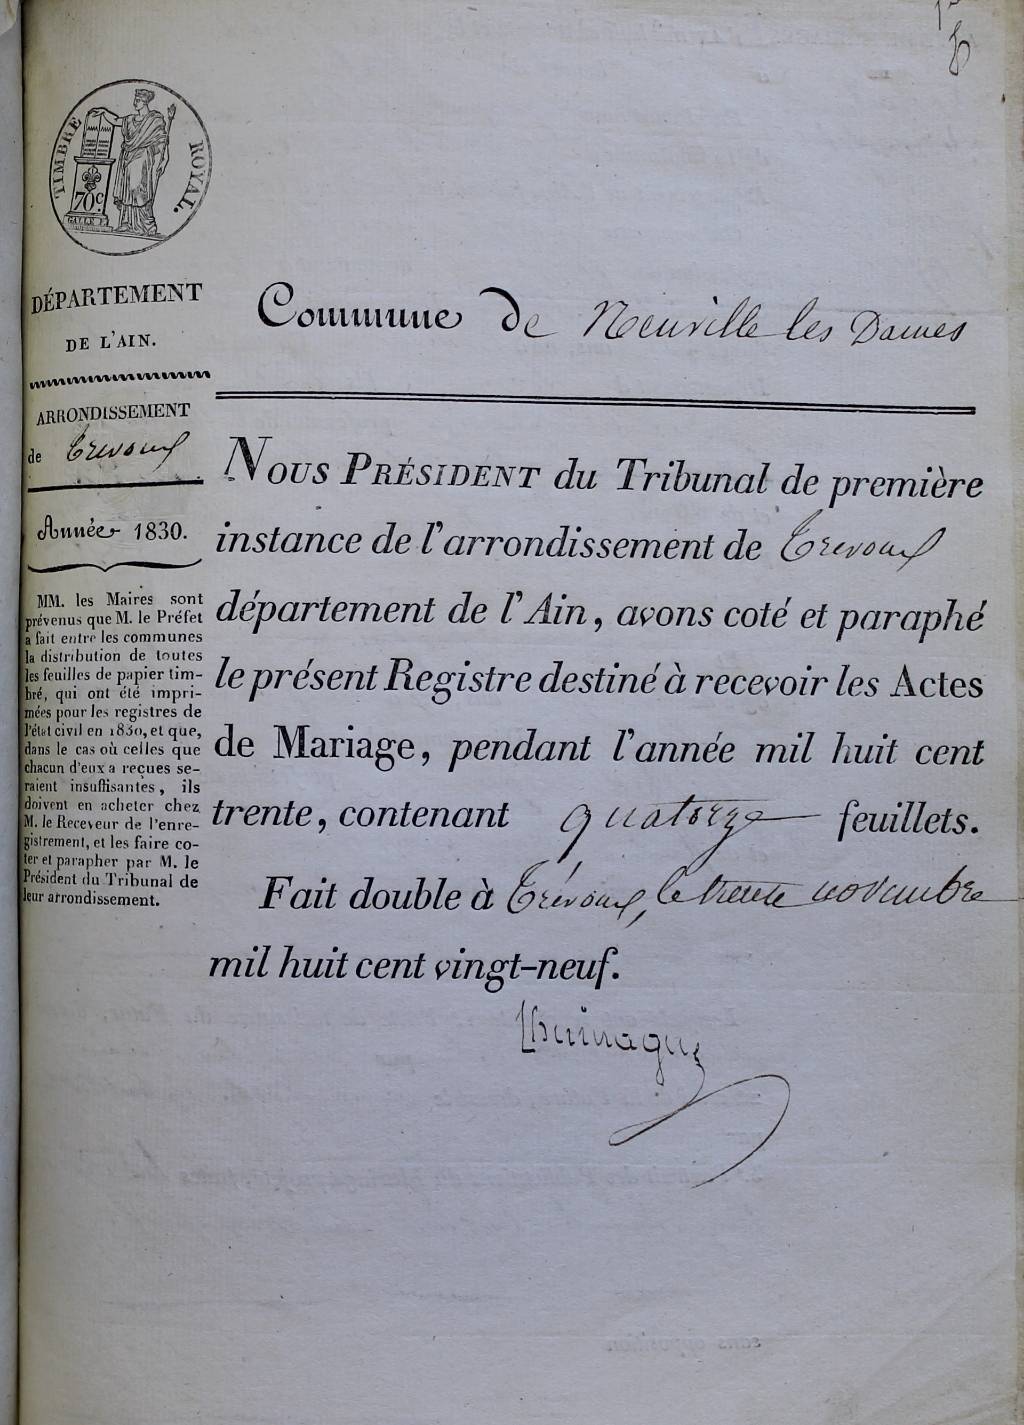 TIMBRE ROYAL.
70c.
GALLE F.
DÉPARTEMENT
DE L'AIN.
ARRONDISSEMENT
de Trevoux
Année 1830.
MM. les Maires sont
prévenus que M. le Préfet
a fait entre les communes
la distribution de toutes
les feuilles de papier tim-
bré, qui ont été impri-
mées pour les registres de
l'état civil en 1830, et que,
dans le cas où celles que
chacun d'eux a reçues se-
raient insuffisantes, ils
doivent en acheter chez
M. le Receveur de l'enre-
gistrement, et les faire co-
ter et parapher par M. le
Président du Tribunal de
leur arrondissement.
Commune de Neuville les Dames
NOUS PRÉSIDENT du Tribunal de première
instance de l'arrondissement de Trevoux
département de l'Ain, avons coté et paraphé
le présent Registre destiné à recevoir les Actes
de Mariage, pendant l'année mil huit cent
trente, contenant quatorze feuillets.
Fait double à Trévoux, le trente novembre
mil huit cent vingt-neuf.